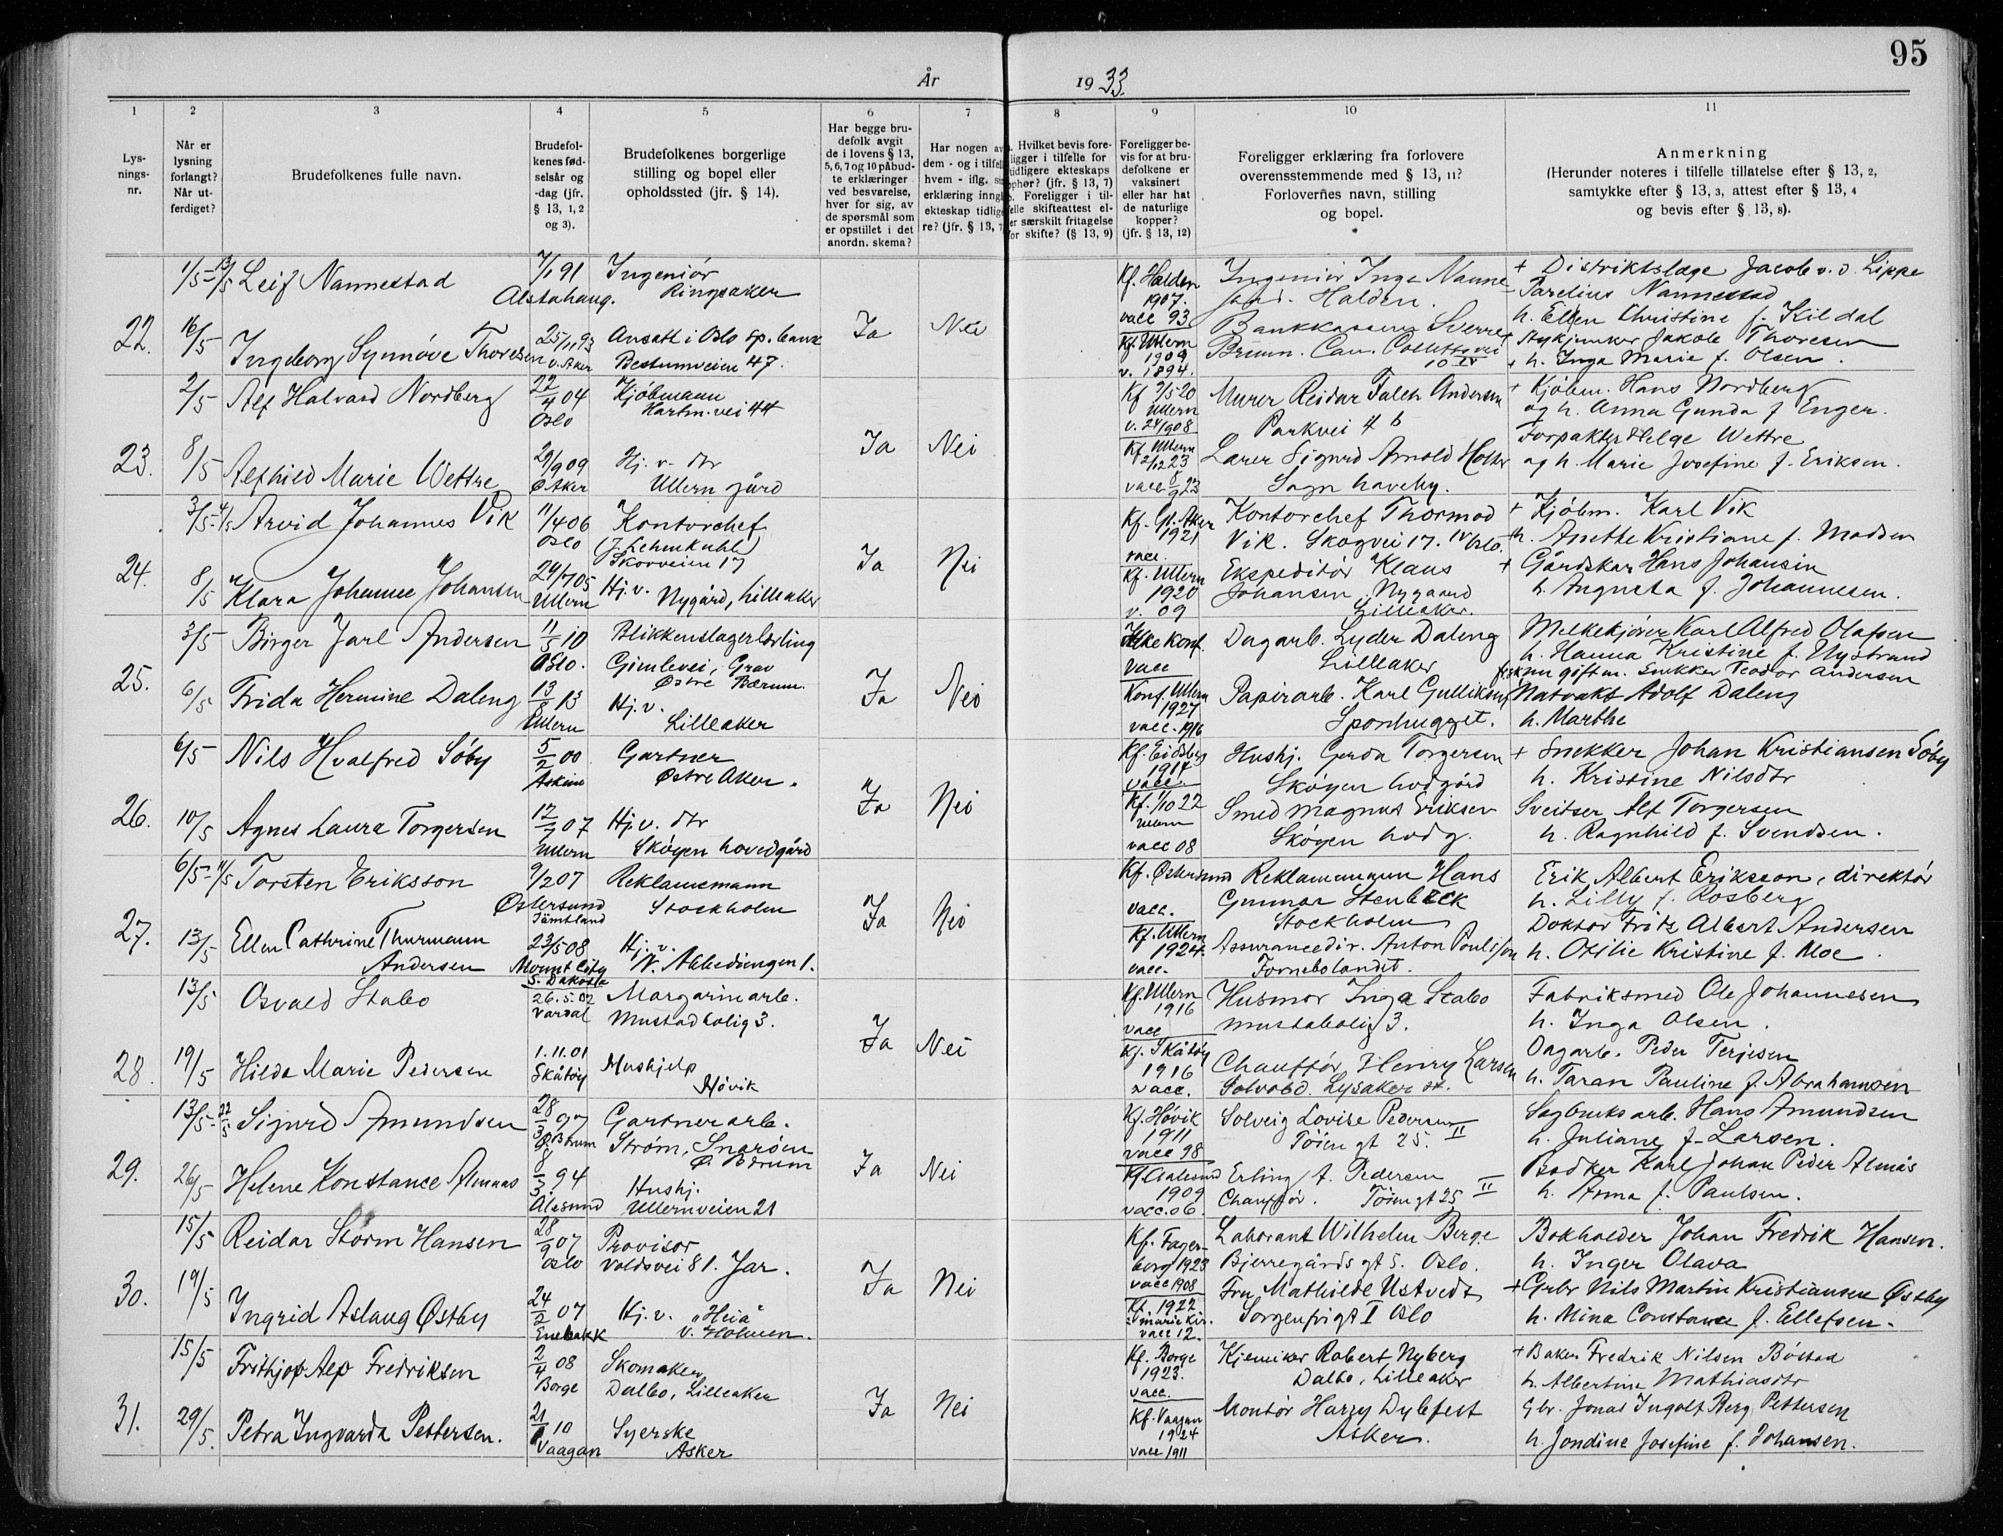 95
År 1933.
1 2 3 4 5 6 7 8 9 10 11
Lys-
nings-
nr.
Når er
lysning
forlangt?
Når ut-
ferdiget?
Brudefolkenes fulle navn.
Brudefol-
kenes fød-
selsår og
-dag (jfr.
§ 13, 1, 2
og 3).
Brudefolkenes borgerlige
stilling og bopel eller
opholdssted (jfr. § 14).
Har begge bru-
defolk avgit
de i lovens § 13,
5, 6, 7 og 10 påbud-
te erklæringer
ved besvarelse,
hver for sig, av
de spørsmål som
er opstillet i det
anordn. skema?
Har nogen av
dem - og i tilfelle
hvem - iflg.
erklæring inngå
ekteskap tidlige
re? (jfr. § 13, 7
Hvilket bevis fore-
ligger i tilfelle for
tidligere ekteskaps
ophør? (jfr. § 13, 7)
Foreligger i til-
felle skifteattest el-
ler særskilt fritagelse
for skifte? (§ 13, 9)
Foreligger be-
vis for at bru-
defolkene er
vaksinert
eller har hat
de naturlige
kopper?
(jfr. § 13, 12)
Foreligger erklæring fra forlovere
overensstemmende med § 13, 11?
Forlovernes navn, stilling
og bopel.
Anmerkning
(Herunder noteres i tilfelle tillatelse efter § 13, 2,
samtykke efter § 13, 3, attest efter § 13, 4
og bevis efter § 13, 8).
22.
1/5 - 13/5 Leif Nannestad 7/1 91 Ingeniør
Alstahaug. Ringsaker
Kf. Halden
1907.
vacc 93
Ingeniør Inge Nanne-
stad. Halden.
+ Distriktslæge Jacob v. d. Lippe
Parelius Nannestad
h. Ellen Christine f. Kildal
16/5 Ingeborg Synnøve Thoresen 25/11 93
v. Aker
Ansatt i Oslo sp. bank
Bestumveien 47.
Ja Nei
Kf. Ullern
1909
v. 1894.
Bankkasserer Sverre
Bruun. Cam. Collettsvei
10 IV
+ h. Inga Marie f. Olsen.
23.
2/5 Alf Halvard Nordberg 22/4 04
Oslo
Kjøbmann
Harbm. vei 44
Kf 9/5 20
Ullern
v. 24/1908
Murer Reidar Falch Andersen
Parkvei 4 b
+ Kjøbm. Hans Nordberg
og h. Anna Gunda f Enger.
8/5 Alfhild Marie Wettre 29/9 09
Ø Aker
Hj. v. dtr
Ullern gård
Ja Nei
Kf. Ullern
2/12 23
Lærer Sigurd Arnold Holter
Sogn haveby.
Forpakter Helge Wettre
og h. Marie Josefine f. Eriksen.
24.
3/5 - 4/5 Arvid Johannes Vik 11/4 06
Oslo
Kontorchef
Skovveien 17
Kf. Gl. Aker
1921
vacc.
Kontorchef Thormod
Vik. Skogvei 17. IV Oslo.
+ Kjøbm. Karl Vik
h. Anette Kristiane f. Madsen
8/5 Klara Johanne Johansen 29/7 05
Ullern
Hj. v. Nygård, Lilleaker
Ja Nei
Kf. Ullern
1920
v. 09
Ekspeditør Klaus
Johansen Nygaard
Lilleaker.
+ Gårdskar Hans Johansen
h. Augusta f. Johannesen.
25.
3/5 Birger Jarl Andersen 11/5 10
Oslo.
Blikkenslagerlærling
Gimlevei, Grav
Østre Bærum.
Ikke konf.
vacc
Dagarb. Lyder Daleng
Lilleaker
Melkekjører Karl Alfred Olafsen
h. Hanna Kristine f. Nystrand
gift m. Snekker Teodor Andersen
6/5 Frida Hermine Daleng 13/8 13
Ullern
Hj. v.
Lilleaker
Ja Nei
Konf. Ullern
1927
vacc. 1916
Papirarb. Karl Gulliksen
Sponhugget.
Natvakt Adolf Daleng
h. Marthe
26.
6/5 Nils Hvalfred Søby 5/2 00
Askim
Gartner
Østre Aker.
Kf. Eidsberg
1914
vacc.
Hushj. Gerda Torgersen
Skøyen hodgård
+ Snekker Johan Kristiansen Søby
h. Kristine Nilsdtr
10/5 Agnes Laura Torgersen 12/9 07
Ullern
Hj. v. dtr
Skøyen hovedgård
Ja Nei
Kf. 1/10 22
Ullern
vacc 08
Smed Magnus Eriksen
Skøyen hvdg.
Sveitser Alf Torgersen
h. Ragnhild f. Svendsen.
27.
6/5 - 11/5 Torsten Eriksson 9/2 07
Östersund
Jämtland
Reklamemann
Stockholm
Kf. Østersund
vacc.
Reklamemann Hans
Gunnar Stenbeck
Stockholm
Erik Albert Eriksson, direktör
h. Lilly f. Rosberg
13/5 Ellen Cathrine Thurmann
Andersen
23/5 08
Mount City
S. Dakota
Hj. v.
N. Abbediengen 1.
Ja Nei
Kf. Ullern
1924.
vacc.
Assurancedir. Anton Poulsson
Fornebolandet.
Doktor Fritz Albert Andersen
h. Otilie Kristine f. Moe.
28.
13/5 Osvald Stabo 26.5.02
Vardal
Margarinarb.
Mustadbolig 3.
Kf. Ullern
1916
vacc
Husmor Inga Stabo
Mustabolig 3.
Fabriksmed Ole Johannesen
h. Inga Olsen.
19/5 Hilda Marie Pedersen 1.11.01
Skåtøy
Hushjelp
Høvik
Ja Nei
Kf. Skåtøy
1916
vacc.
Chauffør Henry Larsen
Solvabd. Lysaker st.
Dagarb. Peder Terjesen
h. Taran Pauline f. Abrahamsen
29.
13/5 - 22/5 Sigurd Amundsen 28/3 97
Ø. Bærum
Gartnerarb.
Strøm, Snarøen
Ø. Bærum
Kf. Høvik
1911
vacc 98
Solveig Lovise Pedersen
Tøien gt 25. II
Sagbruksarb. Hans Amundsen
h. Juliane f. Larsen.
26/5 Helene Konstance Almaas 8/3 94
Ålesund
Hushj.
Ullernveien 21
Ja Nei
Kf Aalesund
1909
vacc. 06.
Erling A. Pedersen
Chauffør. Tøiengt 25 II
Bødker Karl Johan Peder Almås
h. Anna f. Paulsen.
30.
15/5 Reidar Storm Hansen 28/9 07
Oslo
Provisor
Voldsvei 81. Jar.
Kf. Fager-
borg 1923
vacc 1908
Laborant Wilhelm Berge
Bjerregårds gt 5. Oslo.
Bokholder Johan Fredrik Hansen.
h. Inger Olava
19/5 Ingrid Aslaug Østby 24/2 07
Enebakk
Hj. v. "Heia"
v. Holmen.
Ja Nei
Kf. 1922
vacc 12.
Fru Mathilde Ustvedt
Sorgenfrigt I Oslo
+ Grbr Nils Martin Kristiansen Østby
h. Mina Constance f. Ellefsen.
31.
15/5 Frithjof Alf Fredriksen 2/4 08
Borge
Skomaker
Dalbo, Lilleaker
Kf. Borge
1923.
vacc.
Kjemiker Robert Nyberg
Dalbo, Lilleaker
+ Baker Fredrik Nilsen Bøstad
h. Albertine Mathiasdtr
29/5. Petra Ingvarda Pettersen. 21/ 10
Vaagan
Syerske
Asker
Ja Nei
Kf. Vaagan
1924
vacc 1911
Montør Harry Dybfest
Asker.
Gbr. Jonas Ingolf Berg Pettersen
h. Jondine Josefine f. Johansen.